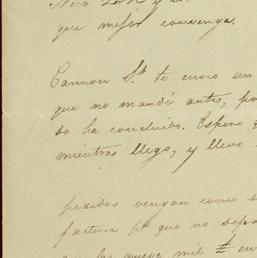 New York y
que mejor convenga.
Cannon St. te envio un
que no mandé antes, po
se ha concluido. Espero q
mientras llego, y llevo
pedidos vengan como s
factura pa. que no sepa
nueve mil